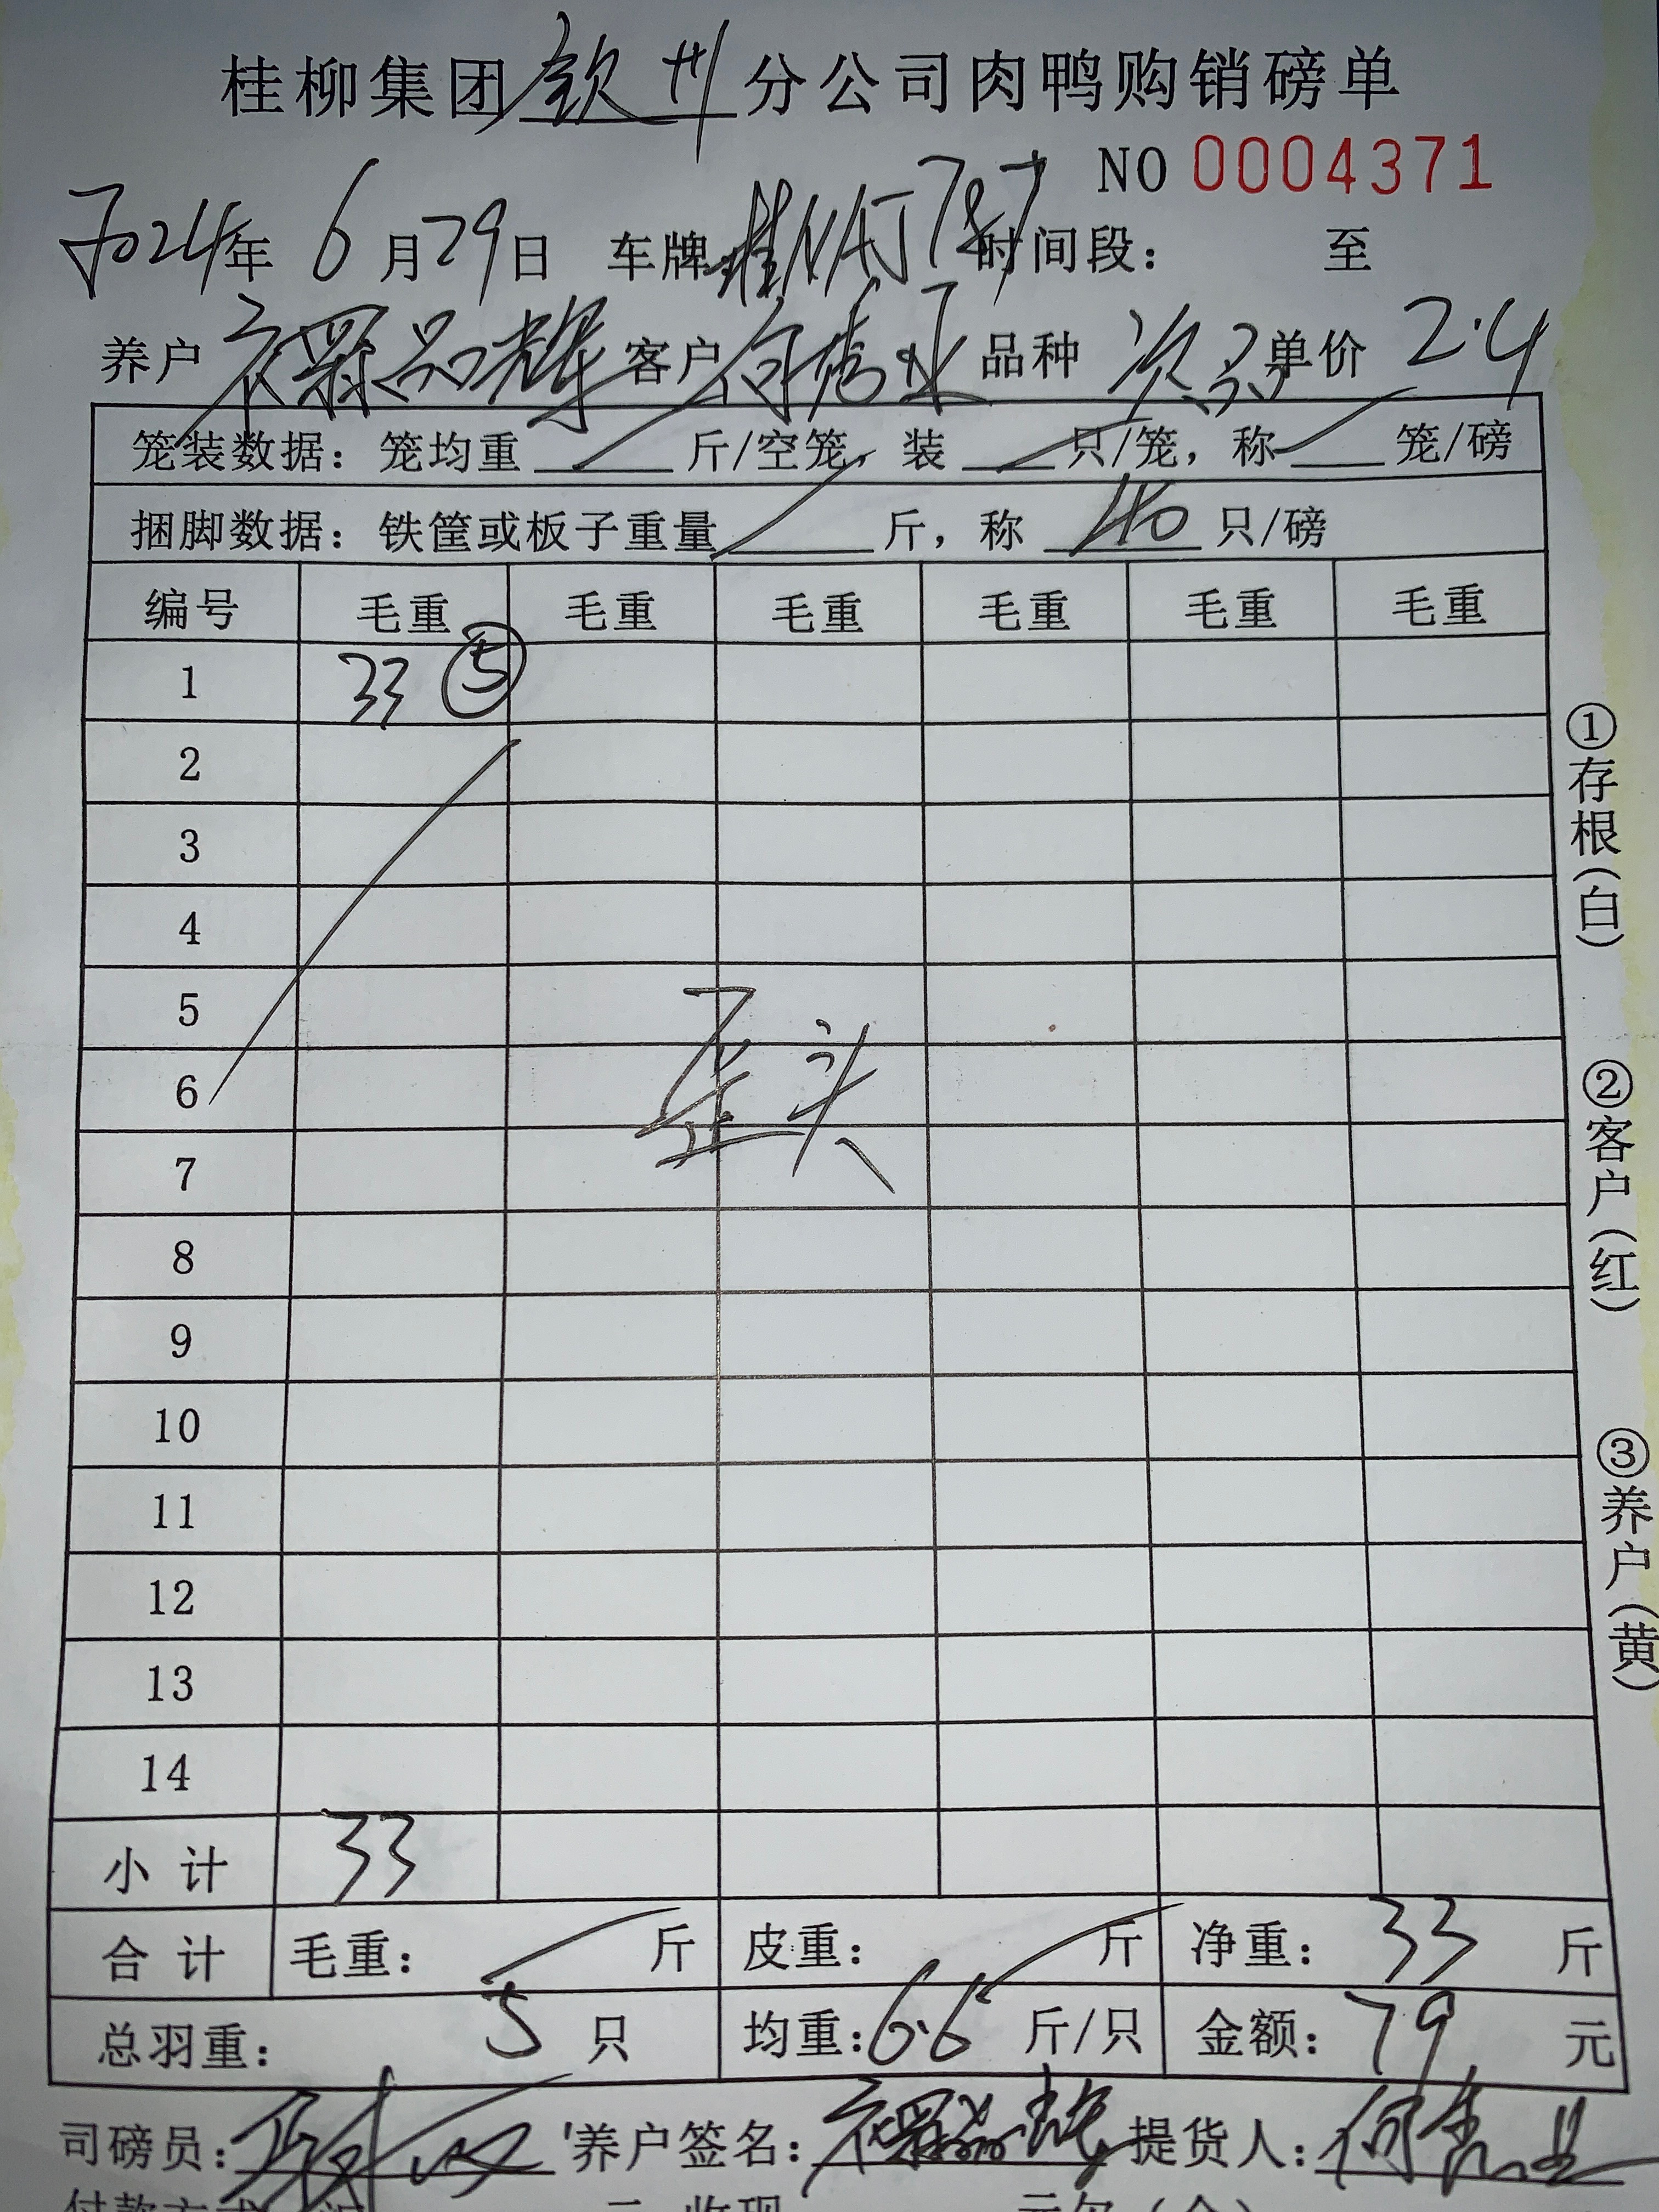 桂柳集团钦州分公司肉鸭购销磅单
NO 0004371
2024年 6月29日 车牌桂NAJ787时间段： 至
养户 品辉 客户 何 品种 次品 单价 2.4
笼装数据：笼均重 斤/空笼，装 只/笼，称 笼/磅
捆脚数据：铁筐或板子重量 斤，称 40 只/磅
编号 毛重 毛重 毛重 毛重 毛重 毛重
1 33 ⑤
2
3
4
5
6
歪头
7
8
9
10
11
12
13
14
小计 33
合计 毛重： 斤 皮重： 斤 净重：33 斤
总羽重： 5 只 均重：6.6 斤/只 金额：79 元
司磅员： 养户签名： 提货人：何
①存根（白）
②客户（红）
③养户（黄）